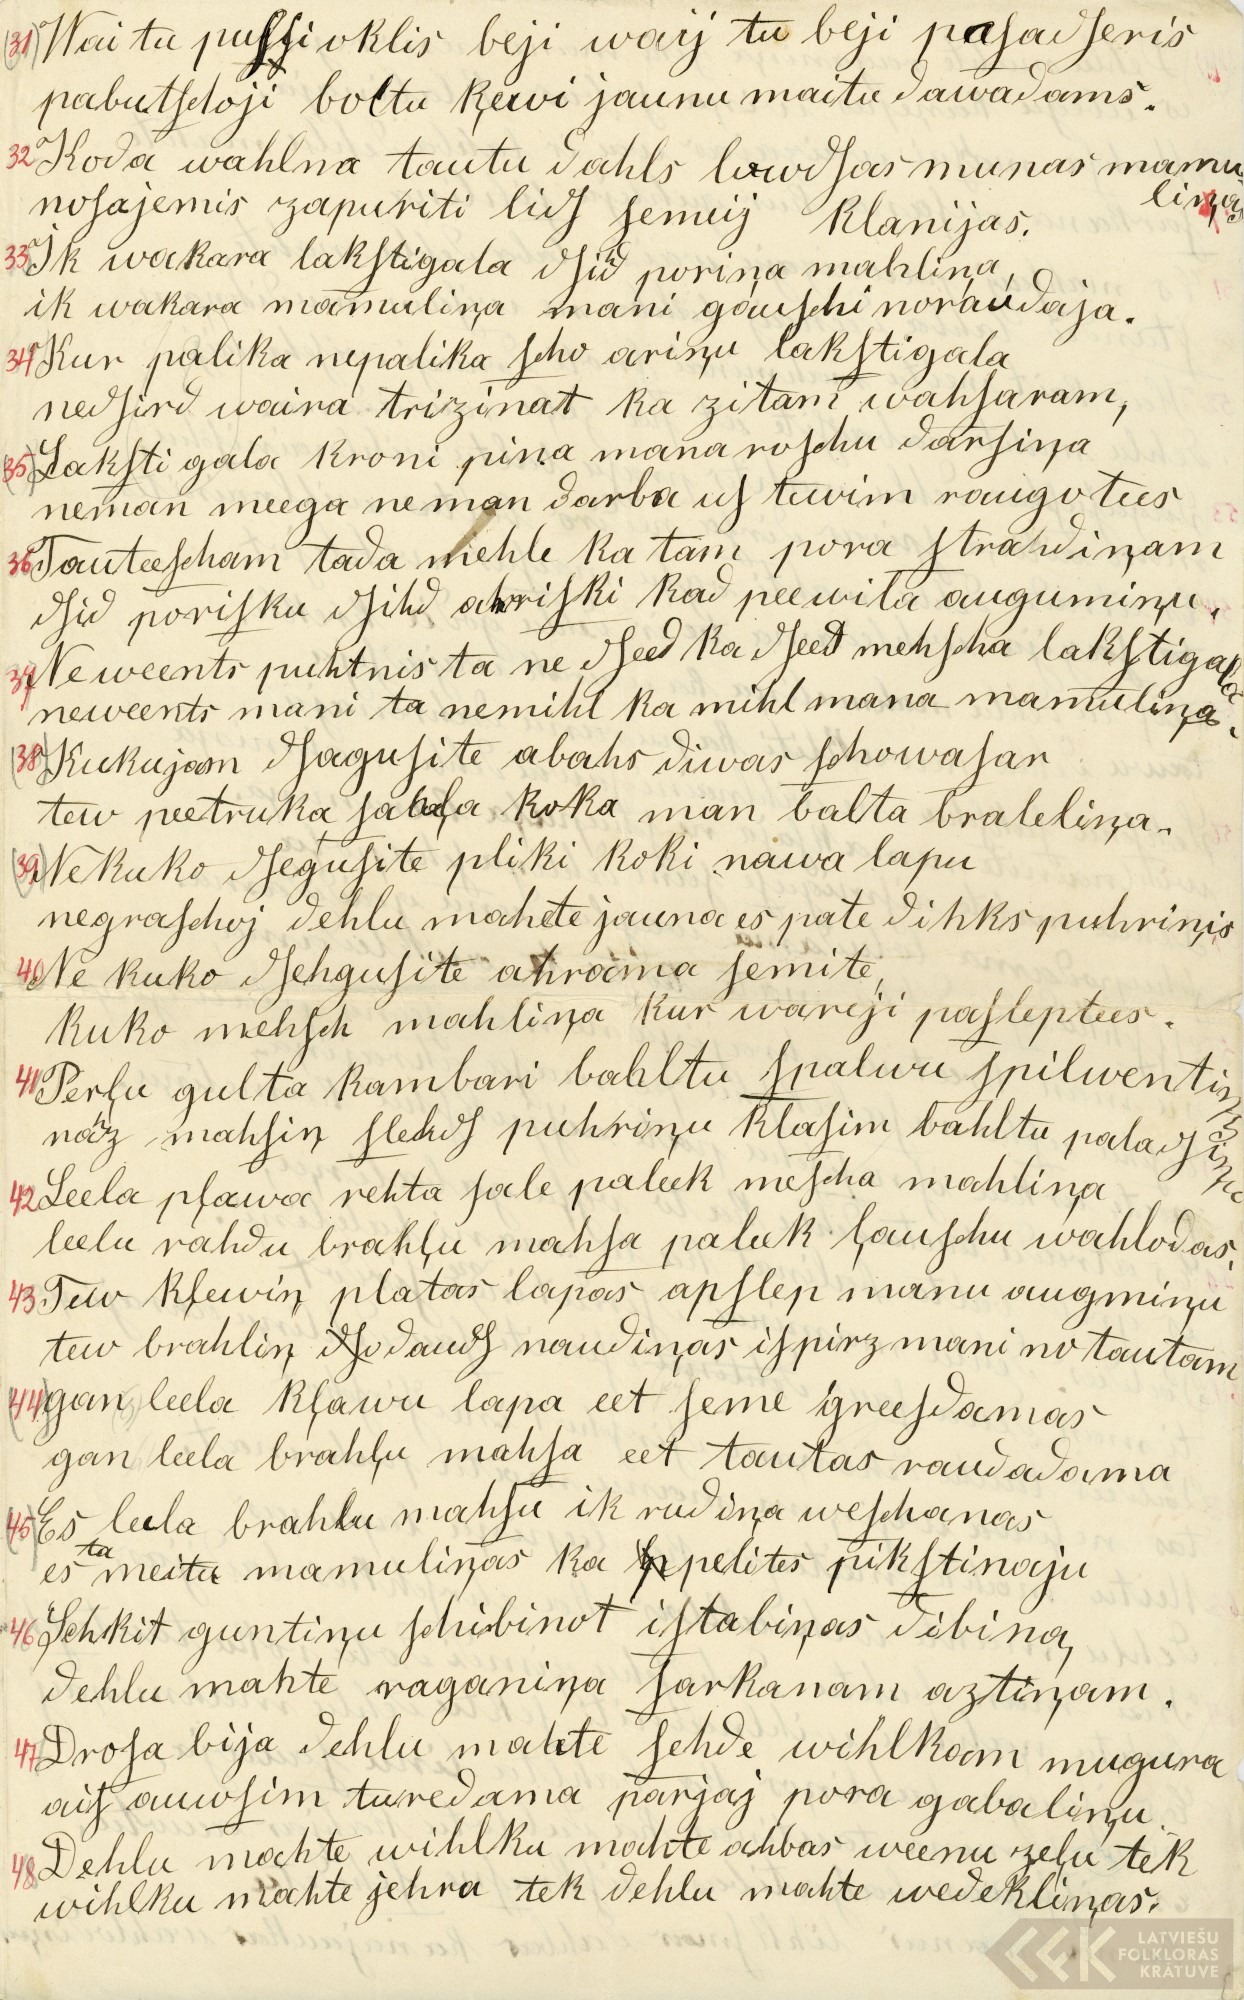 (31) Wai tu puſſioklis beji waij tu beji paſadſeris
pabutſchoji boltu ķewi jaunu maitu dawadams.
32 Koda wahlna tautu dahls luwdſas munas mamu-
liņas
noſajemis zapuriti lidſ ſemuij klanijas.
33 Ik wakara lakſtigala dſid poriņa mahliņa,
ik wakara mamuliņa mani gauſchi noraudaja.
34 Kur palika nepalika ſcho ariņu lakſtigala
nedſird waira trizinat ka zitam wahſaram,
(35) Lakſtigala kroni piņa mana roſchu darſiņa
neman meega neman darba uſ tewim raugotees
36 Tauteeſcham tada mehle ka tam pora ſtradiņam
dſid poriſku dſihd ahriſki kad peewila augumiņu.
37 Neweents puhtnis ta ne dſeed ka dſeed mehſcha lakſtigala
neweents mani ta nemihl ka mihl mana mamuliņa.
(38) Kukujam dſaguſite abahs diwas ſchowaſar
tew peetruka ſaļa koka man balta braleliņa.
(39) Nekuko dſeguſite pliki koki nawa lapu
negraſchoj dehlu mahete jauna es pate dihks puhriņis
40 Ne kuko dſehguſite ahrama ſemite,
kuko mehſch mahliņa kur wareji paſleptees.
41 Perļu gulta kambari bahltu ſpalwu ſpilwentiņi
nahz mahſiņ ſlehdſ puhriņu klaſim bahltu paladſiņu
42 Leela pļawa rehta ſale paleek meſcha mahliņa
leelu rahdu brahļu mahſa paleek ļauſchu wahlodas.
43 Tew kļewiņ platas lapas apſlep manu augmiņu
tew brahliņ daudſ naudiņas iſpirz mani no tautam
(44) gan leela kļawu lapa eet ſeme greeſdamas
gan leela brahļu mahſa eet tautas raudadama
(45) Es leela brahlu mahſu ik rudiņa weſchanas
es ta meita mamuliņas ka pelites pikſtinaju
46 Schkit guntiņu ſchibinot iſtabiņas dibina,
dehlu mahte raganiņa ſarkanam aztiņam.
47 Droſa bija dehlu mahte ſehde wihlkam mugura
aiſ auwſim turedama parjaj pora gabaliņu.
48 Dehlu mahte wihlku mahte ahbas weenu zeļu tek
wihlku mahte jehra tek dehlu mahte wedekliņas.
LATVIEŠU
FOLKLORAS
KRĀTUVE